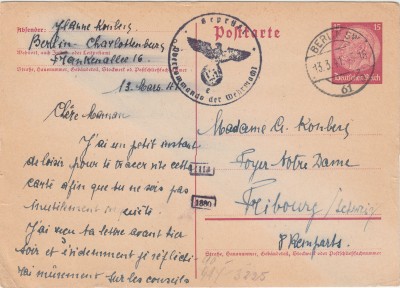 Absender: Jeanne Konberg
Berlin-Charlottenburg
Wohnort, auch Zustell- oder Leitpostamt
Frankenallee 16.
Straße, Hausnummer, Gebäudeteil, Stockwerk od. Postschließfachnummer
Postkarte
Geprüft
Oberkommando der Wehrmacht
e
15 15
Deutsches Reich
BERLIN SW
13.3.
61
13 Mars 41
Chère Maman
J'ai un petit instant
de loisir pour te tracer vite cette
carte afin que tu ne sois pas
inutilement inquiète.
J'ai reçu ta lettre avant hier
soir et évidemment j'ai réfléchi
mûrement sur les conseils
Madame A. Konberg
Foyer Notre Dame
Fribourg / Schweiz
8 Remparts
1880
Straße, Hausnummer, Gebäudeteil, Stockwerk od. Postschließfachnummer